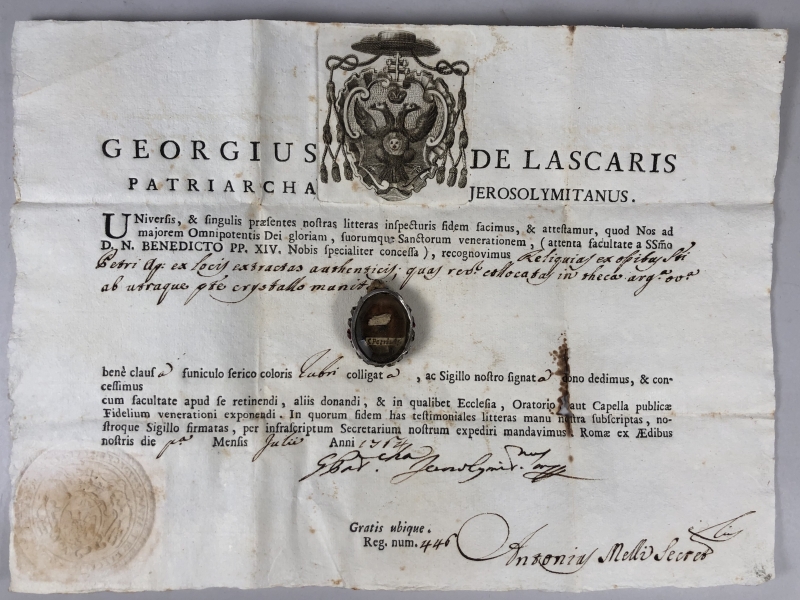 GEORGIUS DE LASCARIS
PATRIARCHA JEROSOLYMITANUS.
UNiversis, & singulis præsentes nostras litteras inspecturis fidem facimus, & attestamur, quod Nos ad
majorem Omnipotentis Dei gloriam, suorumque Sanctorum venerationem, (attenta facultate a SSm̃o
D. N. BENEDICTO PP. XIV. Nobis specialiter concessa), recognovimus Reliquias ex ossibus Sti
Petri Ap: ex locis extractas authenticis; quas revr. collocatas in theca arg. ov.
ab utraque pte crystallo munita
benè clausa funiculo serico coloris rubri colligata, ac Sigillo nostro signata dono dedimus, & con-
cessimus
cum facultate apud se retinendi, aliis donandi, & in qualibet Ecclesia, Oratorio, aut Capella publicæ
Fidelium venerationi exponendi. In quorum fidem has testimoniales litteras manu nostra subscriptas, no-
stroque Sigillo firmatas, per infrascriptum Secretarium nostrum expediri mandavimus. Romæ ex Ædibus
nostris die pa Mensis Julii Anni
Gratis ubique.
Reg. num. 446
Antonius Melli Secret